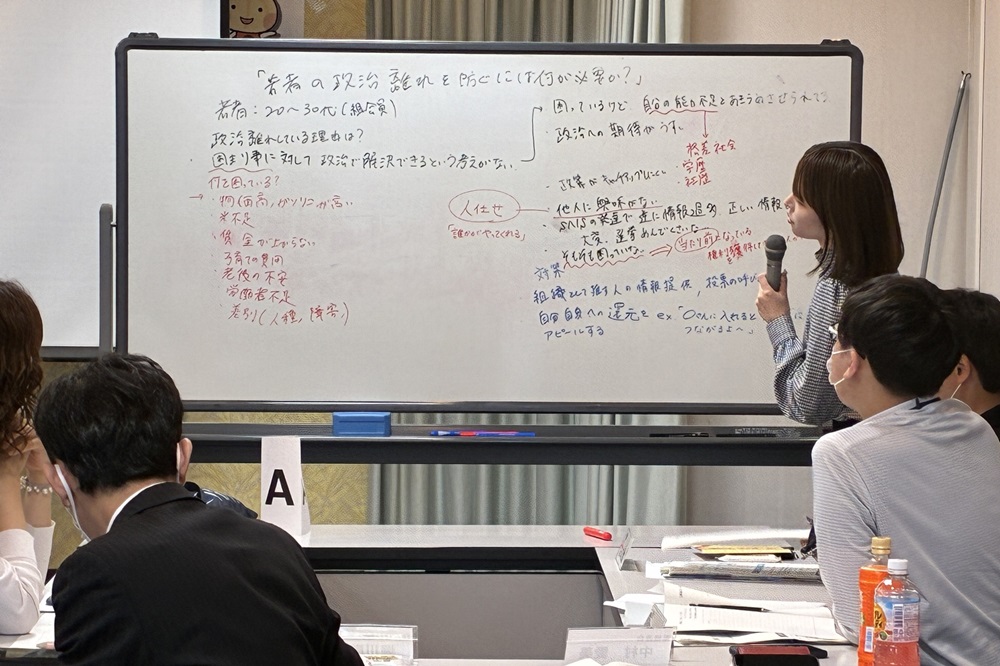 「若者の政治離れを防ぐには何が必要か?」
若者：20〜30代(組合員)
政治離れしている理由は?
・困まり事に対して政治で解決できるという考えがない
何に困っている?
→・物価高,ガソリンが高い
・米不足
・賃金が上がらない
・子育ての費用
・老後の不安
・労働者不足
・差別(人種,障害)
・困っているけど、自分の能力不足とあきらめさせられてる
・政治への期待がうすい
格差社会
・学歴
・経歴
・政策がキャッチアップしにくい
人任せ
「誰かがやってくれる」
・他人に興味がない
・SNSの発達で逆に情報過多 正しい情報
大変、選挙めんどくさいな
そもそも困っていない
当たり前になっている
対策
組織として推す人の情報提供、投票の呼び
自分自身への還元を ex."〇〇さんに入れると
アピールする
つながるよ〜」
A
中村